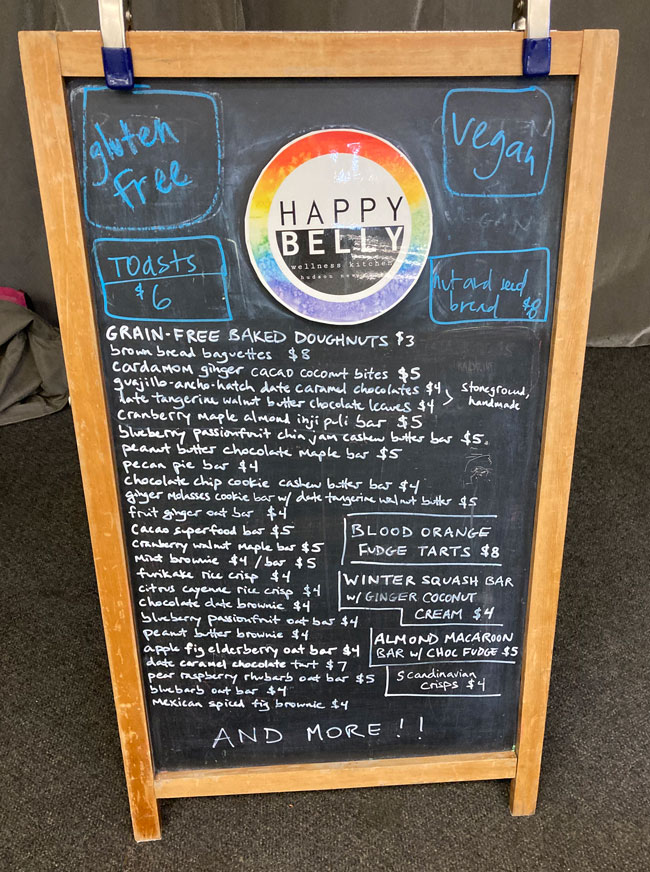 gluten
free
vegan
HAPPY
BELLY
wellness kitchen
hudson
TOASTS
$6
nut and seed
bread $8
GRAIN-FREE BAKED DOUGHNUTS $3
brown bread baguettes $8
cardamom ginger cacao coconut bites $5
guajillo-ancho-hatch date caramel chocolates $4
date tangerine walnut butter chocolate leaves $4
stoneground,
handmade
cranberry maple almond inji puli bar $5
blueberry passionfruit chia jam cashew butter bar $5.
peanut butter chocolate maple bar $5
pecan pie bar $4
chocolate chip cookie cashew butter bar $4
ginger molasses cookie bar w/ date tangerine walnut butter $5
fruit ginger oat bar $4
cacao superfood bar $5
cranberry walnut maple bar $5
mint brownie $4 / bar $5
furikake rice crisp $4
citrus cayenne rice crisp $4
chocolate date brownie $4
blueberry passionfruit oat bar $4
peanut butter brownie $4
apple fig elderberry oat bar $4
date caramel chocolate tart $7
pear raspberry rhubarb oat bar $5
bluebarb oat bar $4
mexican spiced fig brownie $4
BLOOD ORANGE
FUDGE TARTS $8
WINTER SQUASH BAR
W/ GINGER COCONUT
CREAM $4
ALMOND MACAROON
BAR W/ CHOC FUDGE $5
Scandinavian
crisps $4
AND MORE!!